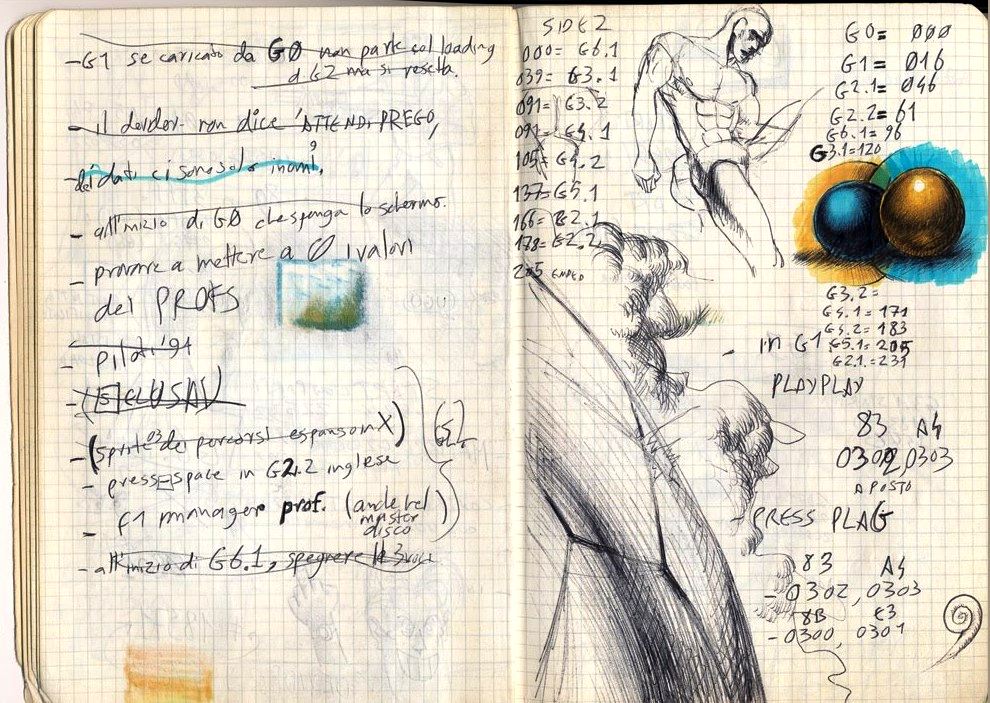 -G1 se caricato da G0 non parte col loading
di G2 ma si resetta.
- il non dice 'ATTENDI PREGO,
- dei dati ci sono solo i nomi,
- all'inizio di G0 che spenga lo schermo.
- provare a mettere a 0 i valori
dei PROFS
- piloti '94
-
- (sprite dei percorsi espansom X)
- press space in G2.2 inglese
- f1 manager prof. (anche nel
master
disco)
- all'inizio di G6.1, spegnere le 3 voci
G2
SIDE 2
000= G6.1
039= G3.1
091= G3.2
091= G4.1
105= G4.2
137= G5.1
166= G2.1
178= G2.2
205
G0= 000
G1= 016
G2.1= 046
G2.2= 61
G6.1= 96
G3.1=120
G3.2=
G4.1= 171
G4.2= 183
G5.1= 205
G2.1= 231
- IN G1
PLAYPLAY
83 A4
0302,0303
A POSTO
- PRESS PLAG
83 A4
- 0302, 0303
8B C3
- 0300, 0301